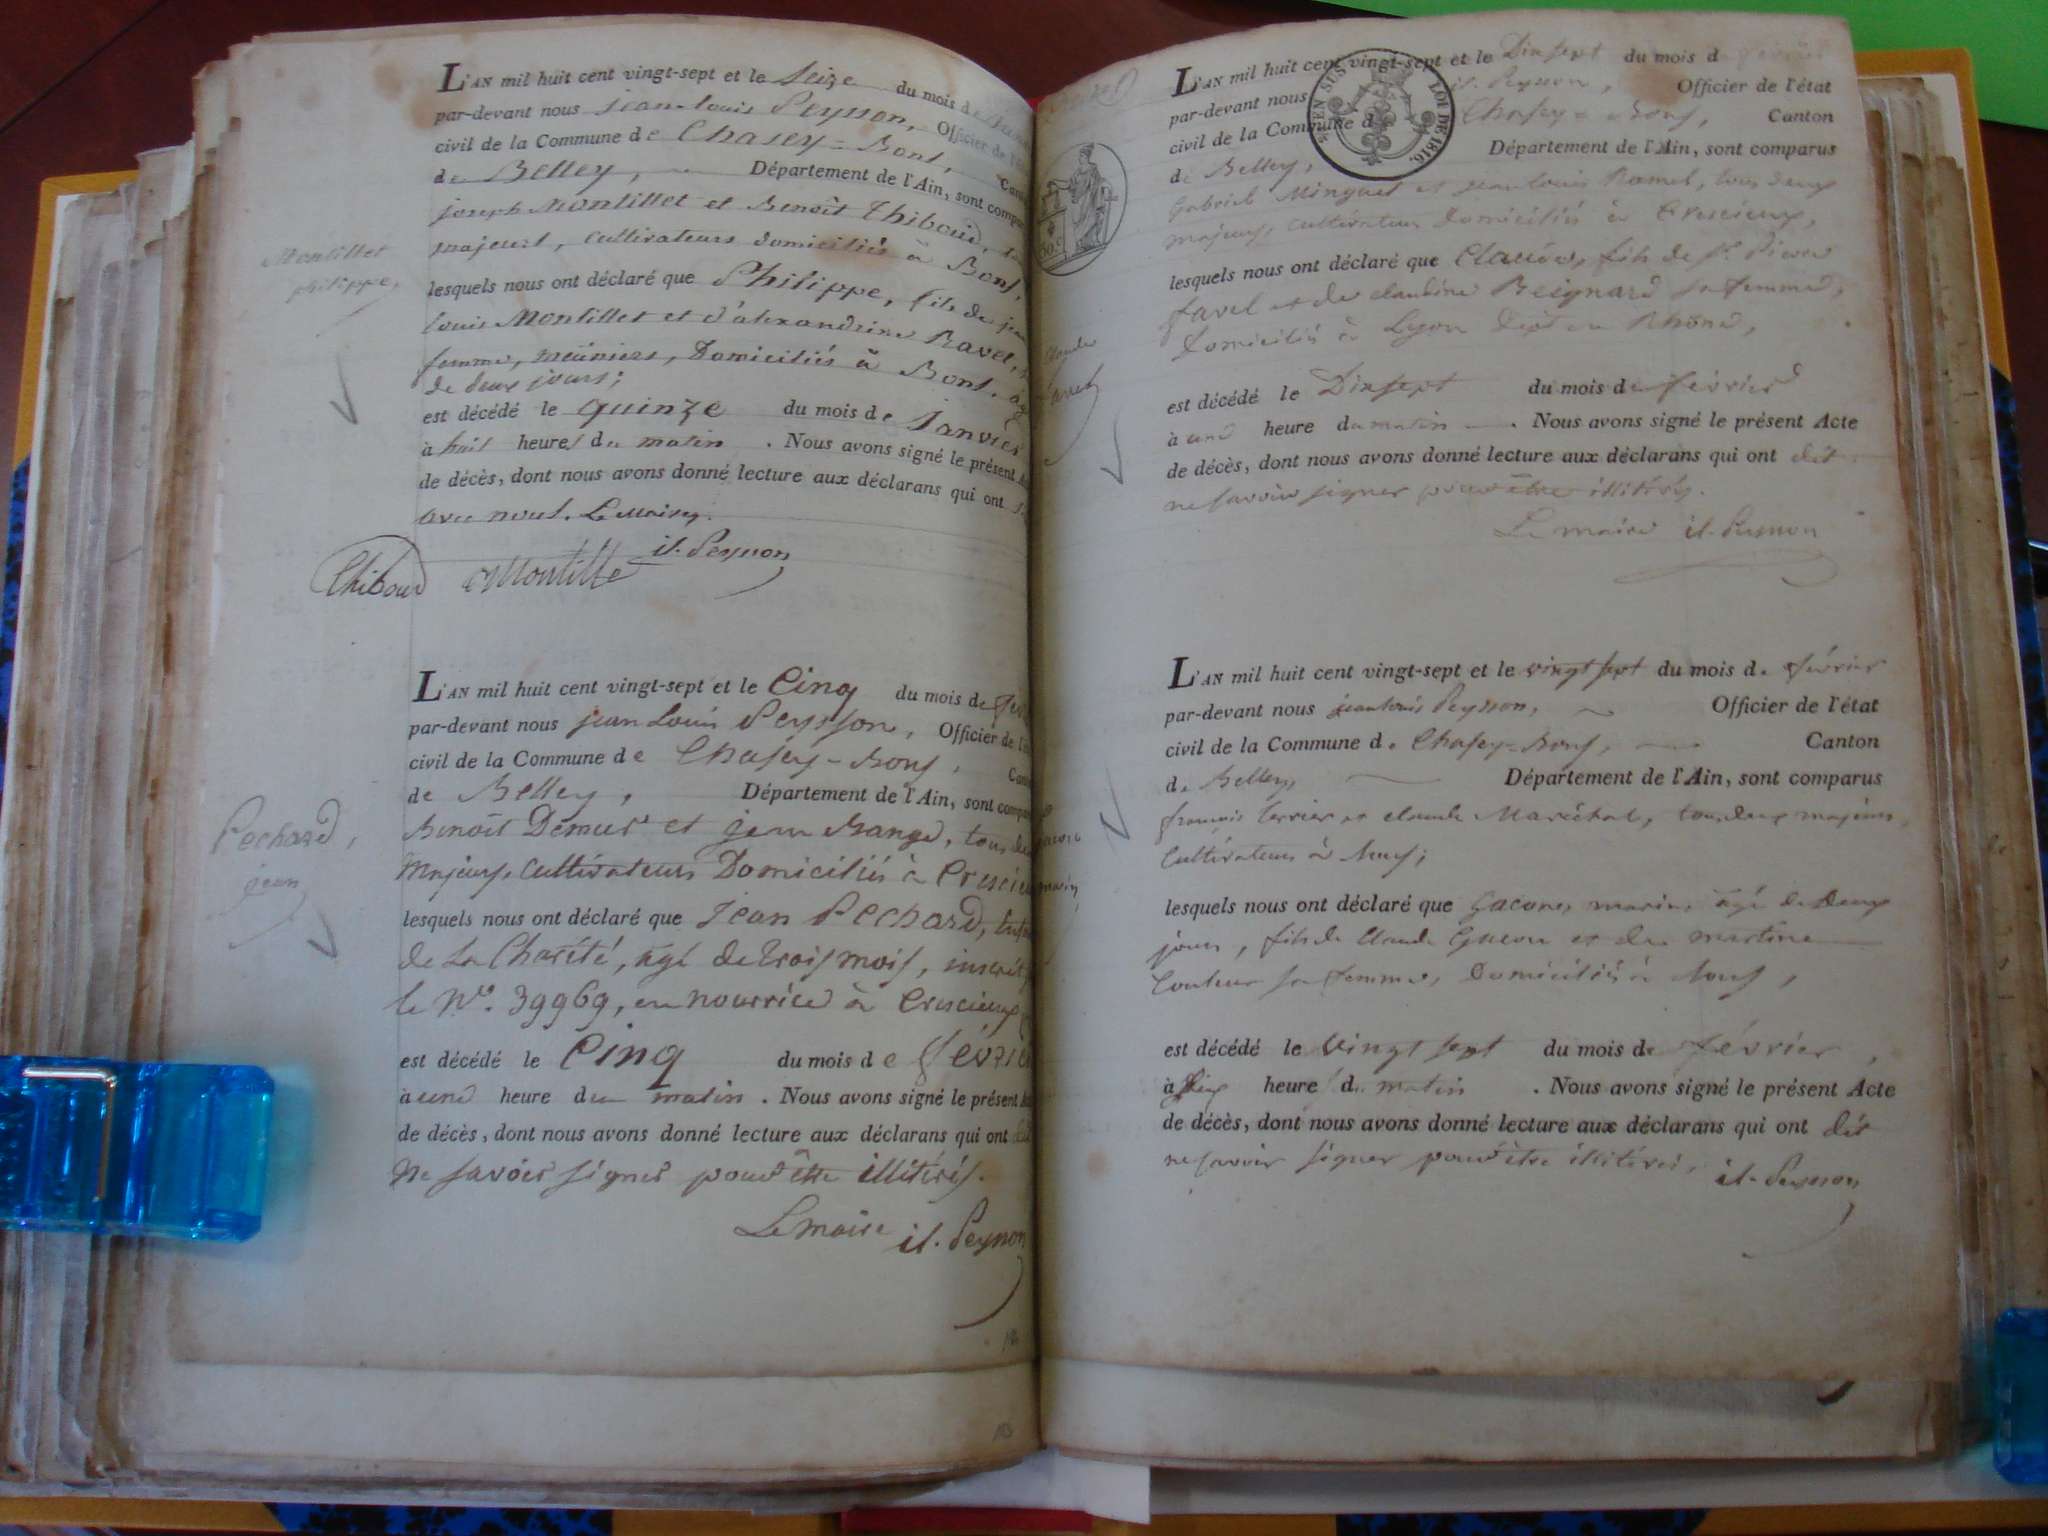 L'AN mil huit cent vingt-sept et le Seize du mois de
par-devant nous jean-louis Peysson, Officier de l'
civil de la Commune de Chasey-Bons,
de Belley, Département de l'Ain, sont compar
joseph Montillet et Benoît Thiboud,
majeurs, cultivateurs domiciliés à Bons,
Montillet
philippe,
lesquels nous ont déclaré que Philippe, fils de jean
louis Montillet et d'alexandrine Ravel,
femme, meüniers, Domiciliés à Bons, agé
de deux jours;
est décédé le quinze du mois de Janvier
à huit heures du matin. Nous avons signé le présent
de décès, dont nous avons donné lecture aux déclarans qui ont
avec nous. Le Maire,
jl. Peysson
Thiboud Montille
L'AN mil huit cent vingt-sept et le Cinq du mois de fév
par-devant nous jean Louis Peysson, Officier de l'
civil de la Commune de Chasey-Bons,
de Belley, Département de l'Ain, sont compar
Benoît Demeur et jean Bange, tous de
Majeurs, cultivateurs Domiciliés à Crescieu
Pechard,
jean
lesquels nous ont déclaré que Jean Pechard, enfa
de La Charité, agé de trois mois, inscrit
le No. 39969, en nourrice à Crescieux
est décédé le Cinq du mois de févrie
à une heure du matin. Nous avons signé le présent
de décès, dont nous avons donné lecture aux déclarans qui ont
Ne savoir signer pour être illitérés.
Le maire jl. Peysson
L'AN mil huit cent vingt-sept et le Dix sept du mois d février
par-devant nous jl. Peysson, Officier de l'état
civil de la Commune de Chasey-Bons, Canton
de Belley, Département de l'Ain, sont comparus
Gabriel Minguet et jean louis Ramel, tous deux
majeurs, cultivateurs Domiciliés à Crescieux,
EN SUS
LOI DE 1816.
lesquels nous ont déclaré que Claude, fils de Pierre
favel et de claudine Beignard sa femme,
Domiciliés à Lyon Dépt du Rhône,
Claude
favel
est décédé le Dix sept du mois de février
à une heure du matin. Nous avons signé le présent Acte
de décès, dont nous avons donné lecture aux déclarans qui ont dit
ne savoir signer pour être illitérés.
Le maire jl. Peysson
L'AN mil huit cent vingt-sept et le vingt sept du mois de février
par-devant nous jean louis Peysson, Officier de l'état
civil de la Commune de Chasey-Bons, Canton
de Belley, Département de l'Ain, sont comparus
françois terrier et claude Maréchal, tous deux majeurs,
Cultivateurs à
lesquels nous ont déclaré que Gacon, marin, agé de Deux
jours, fils de Claude Gacon et de martine
Couteur sa femme, Domiciliés à
est décédé le vingt sept du mois de février,
à heures du matin. Nous avons signé le présent Acte
de décès, dont nous avons donné lecture aux déclarans qui ont dit
ne savoir signer pour être illitérés,
jl. Peysson